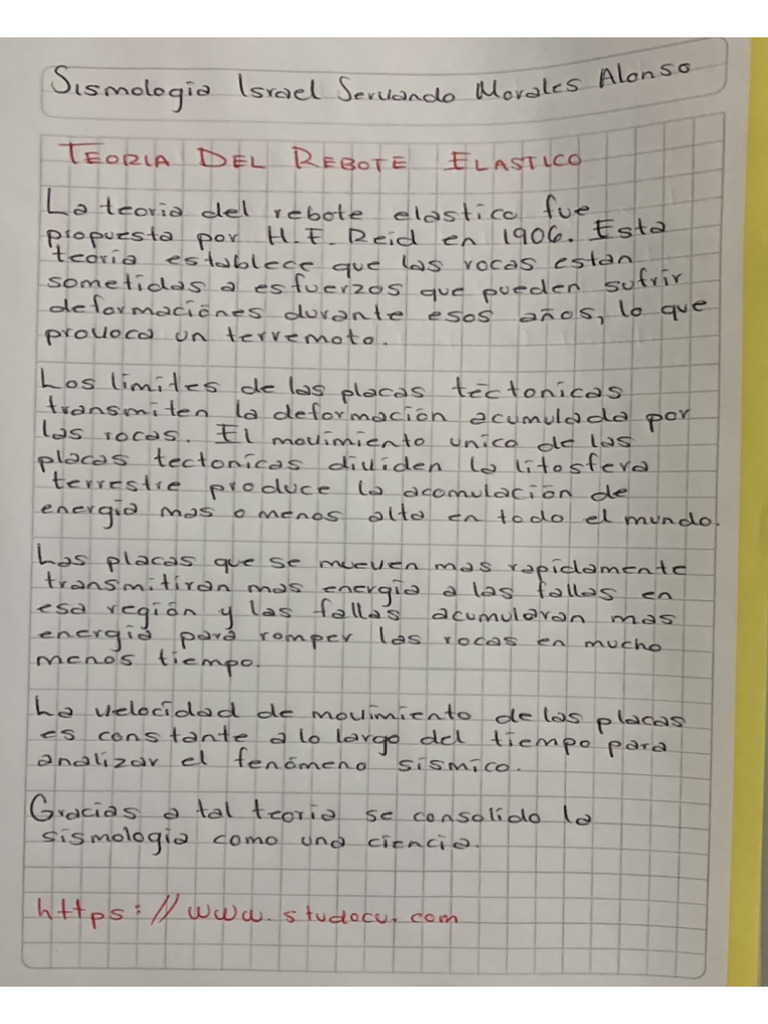 Sismologia Israel Servando Morales Alonso
TEORIA DEL REBOTE ELASTICO
La teoria del rebote elastico fue
propuesta por H.F. Reid en 1906. Esta
teoria establece que las rocas estan
sometidas a esfuerzos que pueden sufrir
deformaciónes durante esos años, lo que
provoca un terremoto.
Los límites de las placas téctonicas
transmiten la deformación acumulada por
las rocas. El movimiento unico de las
placas tectonicas dividen la litosfera
terrestre produce la acomulación de
energía mas o menos alta en todo el mundo.
Las placas que se mueven mas rapidamente
transmitiran mas energía a las fallas en
esa región y las fallas acumularan mas
energía para romper las rocas en mucho
menos tiempo.
La velocidad de movimiento de las placas
es constante a lo largo del tiempo para
analizar el fenómeno sísmico.
Gracias a tal teoria se consolido la
sismologia como una ciencia.
https://www.studocu.com